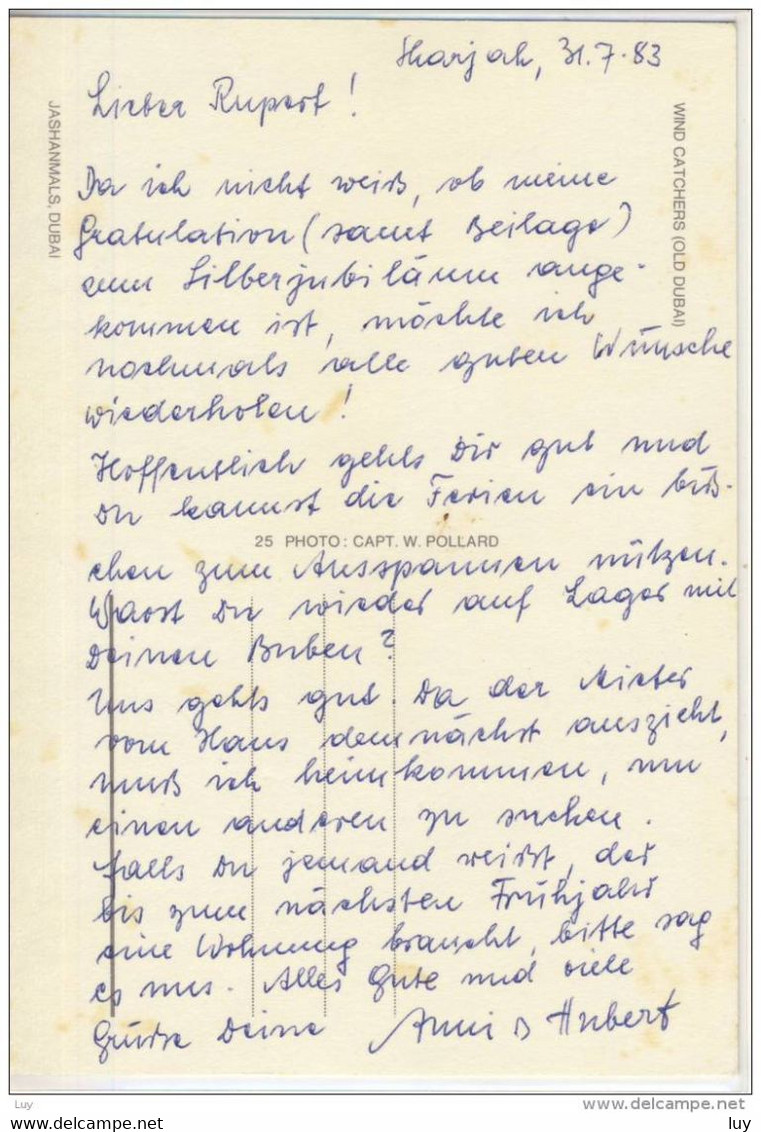 Sharjah, 31.7.83
Lieber Rupert!
Da ich nicht weiß, ob meine
Gratulation (samt Beilage)
zum Silberjubiläum ange-
kommen ist, möchte ich
nochmals alle guten Wünsche
wiederholen!
Hoffentlich gehts Dir gut und
Du kannst die Ferien ein biß-
chen zum Ausspannen nützen.
Warst Du wieder auf Lager mit
Deinen Buben?
Uns gehts gut. Da der Mieter
vom Haus demnächst auszieht,
muß ich heimkommen, um
einen anderen zu suchen.
Falls Du jemand weißt, der
bis zum nächsten Frühjahr
eine Wohnung braucht, bitte sag
es uns. Alles Gute und viele
Grüße Deine Anni & Hubert
JASHANMALS, DUBAI
WIND CATCHERS (OLD DUBAI)
25 PHOTO: CAPT. W. POLLARD
Luy
www.delcampe.net
luy
www.delcampe.net
luy